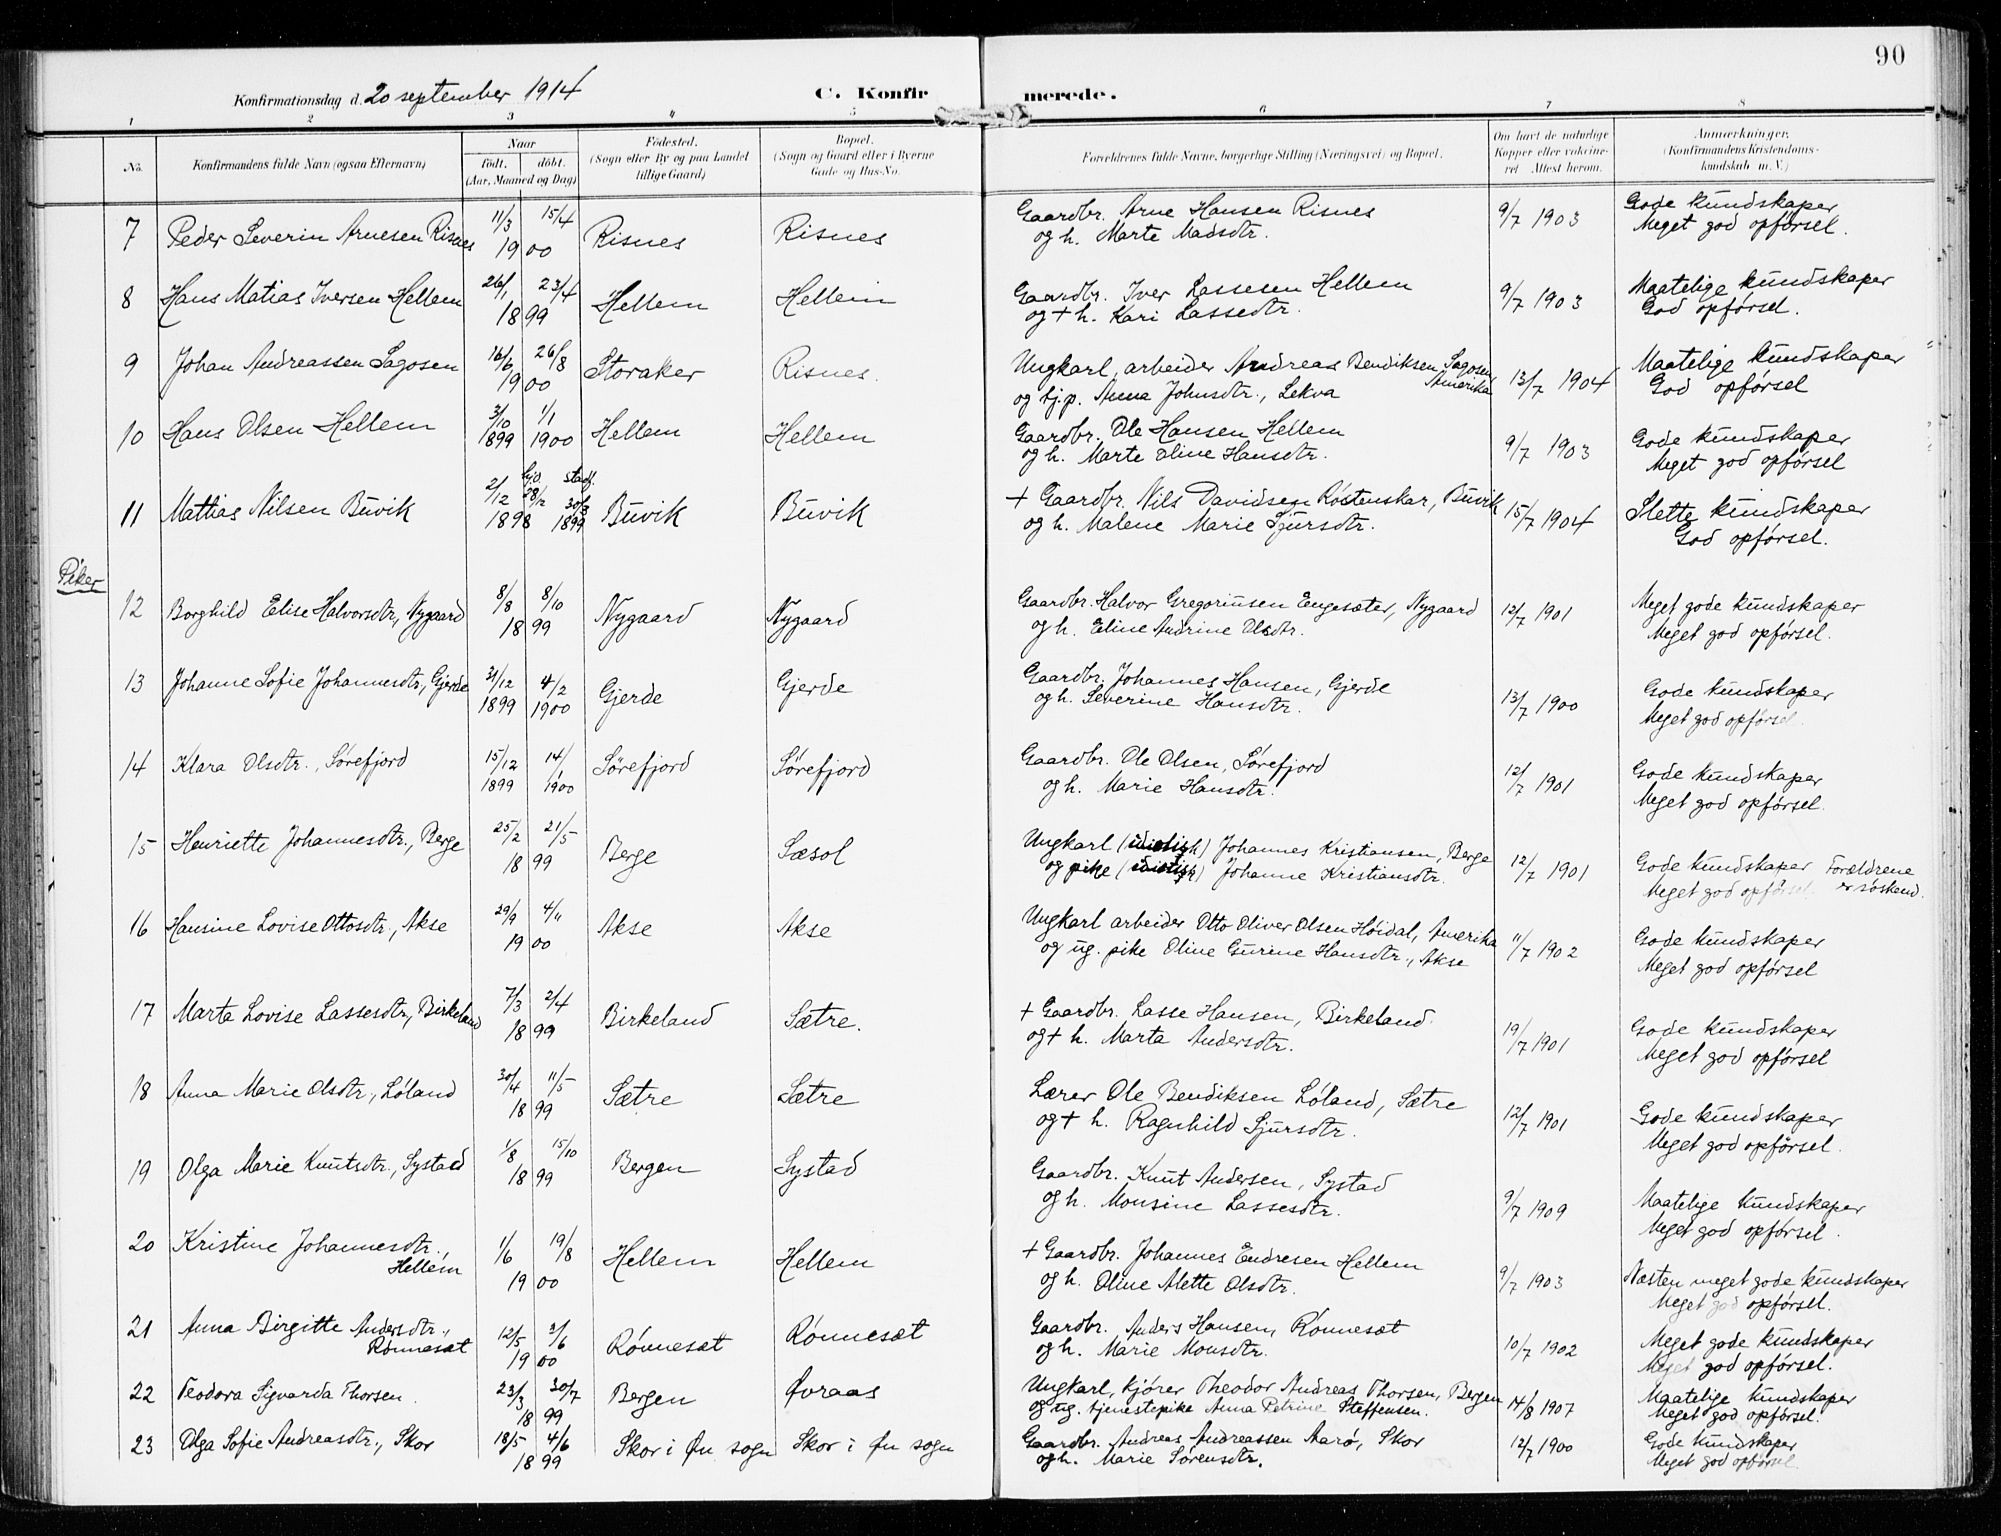 90
Konfirmationsdag d. 20 september 1914 C. Konfirmerede.
1 2 3 4 5 6 7 8
No. Konfirmandens fulde Navn (ogsaa Efternavn) Naar født. døbt. (Aar, Maaned og Dag) Fødested. (Sogn eller By og paa Landet tillige Gaard) Bopæl. (Sogn og Gaard eller i Byerne Gade og Hus-No. Forældrenes fulde Navne, borgerlige Stilling (Næringsvei) og Bopæl. Om havt de naturlige Kopper eller vakcineret Attest herom. Anmærkninger. (Konfirmandens Kristendomskundskab m. V.)
7 Peder Severin Arnesen Risnes 11/3 15/4 1900 Risnes Risnes Gaardbr. Arne Hansen Risnes 9/7 1903 Gode kundskaper
og h. Marte Madsdtr. Meget god opførsel.
8 Hans Matias Iversen Hellem 26/1 23/4 1899 Hellem Hellem Gaardbr. Iver Lassesen Hellem 9/7 1903 Maatelige kundskaper
og + h. Kari Lassedtr. God opførsel.
9 Johan Andreassen Sagosen 16/6 26/8 1900 Storaker Risnes. Ungkarl, arbeider Andreas Bendiksen Sagosen, Amerika 13/7 1904 Maatelige kundskaper
og tj.p. Anna Johnsdtr., Lekva God opførsel
10 Hans Olsen Hellem 3/10 1899 1/1 1900 Hellem Hellem Gaardbr. Ole Hansen Hellem 9/7 1903 Gode kundskaper
og h. Marte Oline Hansdtr. Meget god opførsel
11 Mattias Nilsen Buvik 2/12 1898 28/2 stadf. 30/3 1899 Buvik Buvik + Gaardbr. Nils Davidsen Røstenskar, Buvik 15/7 1904 Slette kundskaper
og h. Malene Marie Sjursdtr. God opførsel.
Piker
12 Borghild Elise Halvorsdtr, Nygaard 8/8 8/10 1899 Nygaard Nygaard Gaardbr. Halvor Gregoriusen Engesæter, Nygaard 12/7 1901 Meget gode kundskaper
og h. Eline Andrine Olsdtr. Meget god opførsel.
13 Johanne Sofie Johannesdtr., Gjerde 31/12 1899 4/2 1900 Gjerde Gjerde Gaardbr. Johannes Hansen, Gjerde 13/7 1900 Gode kundskaper
og h. Severine Hansdtr. Meget god opførsel.
14 Klara Olsdtr., Sørefjord 15/12 1899 14/1 1900 Sørefjord Sørefjord Gaardbr. Ole Olsen, Sørefjord 12/7 1901 Gode kundskaper
og h. Marie Hansdtr. Meget god opførsel.
15 Henriette Johannesdtr., Berge 25/2 21/5 1899 Berge Sæsol Ungkarl (idiotisk) Johannes Kristiansen, Berge 12/7 1901 Gode kundskaper Forældrene
og pike (idiotisk) Johanne Kristiansdtr. Meget god opførsel. er søskend.
16 Hansine Lovise Ottosdtr., Akse 29/9 4/11 1900 Akse Akse Ungkarl arbeider Otto Oliver Olsen Høidal, Amerika 11/7 1902 Gode kundskaper
og ug. pike Oline Gurine Hansdtr., Akse Meget god opførsel
17 Marta Lovise Lassesdtr, Birkeland 7/3 2/4 1899 Birkeland Sætre. + Gaardbr. Lasse Hansen, Birkeland. 19/7 1901 Gode kundskaper
og + h. Marta Andersdtr. Meget god opførsel
18 Anna Marie Olsdtr., Løland 30/4 11/5 1899 Sætre Sætre Lærer Ole Bendiksen Løland, Sætre 12/7 1901 Gode kundskaper
og + h. Ragnhild Sjursdtr. Meget god opførsel.
19 Olga Marie Knutsdtr., Systad 1/8 15/10 1899 Bergen Systad Gaardbr. Knut Andersen, Systad 9/7 1909 Maatelige kundskaper
og h. Monsine Lassesdtr. Meget god opførsel.
20 Kristine Johannesdtr., Hellem 1/6 19/8 1900 Hellem Hellem + Gaardbr. Johannes Endresen Hellem 9/7 1903 Næsten meget gode kundskaper
og h. Oline Alette Olsdtr. Meget god opførsel.
21 Anna Birgitte Andersdtr., Rønnesæt 12/5 3/6 1900 Rønnesæt Rønnesæt Gaardbr. Anders Hansen, Rønnesæt 10/7 1902 Meget gode kundskaper
og h. Marie Monsdtr. Meget god opførsel.
22 Teodora Sigvarda Thorsen. 23/3 30/7 1899 Bergen Øvraas Ungkarl, kjører Theodor Andreas Thorsen, Bergen 14/8 1907 Maatelige kundskaper
og ug. tjenestepike Anna Petrine Steffensen. Meget god opførsel.
23 Olga Sofie Andreasdtr., Skor 18/5 4/6 1899 Skor i Øn sogn Skor i Øn sogn Gaardbr. Andreas Andreassen Aarø, Skor 12/7 1900 Gode kundskaper
og h. Marie Sørensdtr. Meget god opførsel.